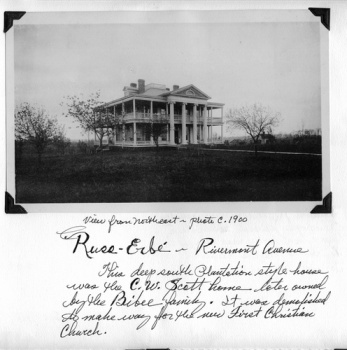 View from northeast ~ photo c. 1900
Russ-Erbé ~ Rivermont Avenue
This deep south Plantation style house
was the C.W. Scott home, later owned
by the Beibee family. It was demolished
to make way for the new First Christian
Church.